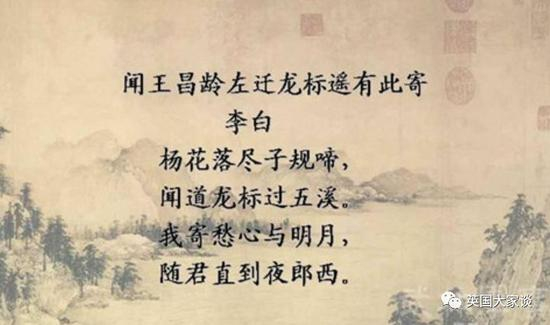 闻王昌龄左迁龙标遥有此寄
李白
杨花落尽子规啼，
闻道龙标过五溪。
我寄愁心与明月，
随君直到夜郎西。
英国大家谈